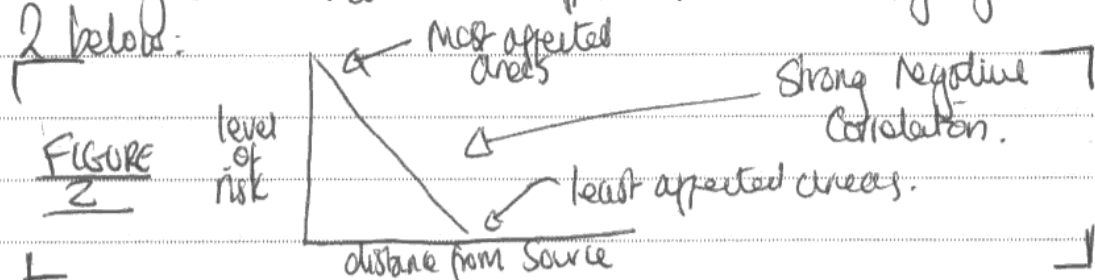 2 below:
most affected
areas
Strong Negative
Correlation.
FIGURE
2
level
of
risk
least affected areas.
distance from Source